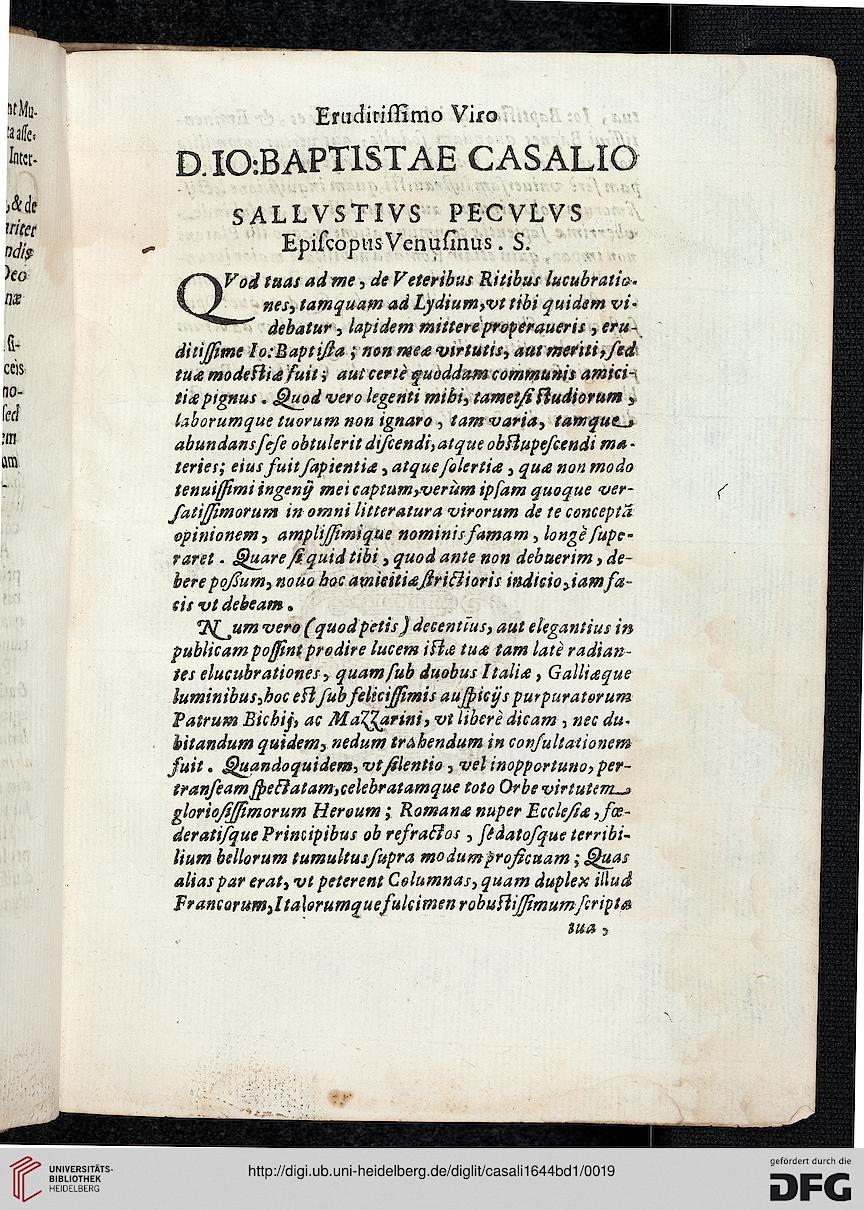 nt Mu-
ta asse-
Inter-
, & de
ariter
ndis
Deo
næ
si-
ceis
no-
sed
em
am
Eruditiſſimo Viro
D. IO: BAPTISTAE CASALIO
SALLVSTIVS PECVLVS
Epiſcopus Venuſinus. S.
QVod tuas ad me, de Veteribus Ritibus lucubratio-
nes, tamquam ad Lydium, vt tibi quidem vi-
debatur, lapidem mittere properaueris, eru-
ditiſſime Io: Baptiſta; non meæ virtutis, aut meriti, ſed
tuæ modeſtiæ fuit; aut certè quoddam communis amici-
tiæ pignus. Quod vero legenti mihi, tametſi ſtudiorum,
laborumque tuorum non ignaro, tam varia, tamque
abundans ſeſe obtulerit diſcendi, atque obſtupeſcendi ma-
teries; eius fuit ſapientiæ, atque ſolertiæ, quæ non modo
tenuiſſimi ingenij mei captum, verùm ipſam quoque ver-
ſatiſſimorum in omni litteratura virorum de te conceptã
opinionem, ampliſſimique nominis famam, longè ſupe-
raret. Quare ſi quid tibi, quod ante non debuerim, de-
bere poßum, nouo hoc amicitiæ ſtrictioris indicio, iam fa-
cis vt debeam.
Num vero (quod petis) decentius, aut elegantius in
publicam poſſint prodire lucem iſtæ tuæ tam latè radian-
tes elucubrationes, quam ſub duobus Italiæ, Galliæque
luminibus, hoc eſt ſub feliciſſimis auſpicijs purpuratorum
Patrum Bichij, ac Mazzarini, vt liberè dicam, nec du-
bitandum quidem, nedum trahendum in conſultationem
fuit. Quandoquidem, vt ſilentio, vel inopportuno, per-
tranſeam ſpectatam, celebratamque toto Orbe virtutem
glorioſiſſimorum Heroum; Romanæ nuper Eccleſiæ, fœ-
deratiſque Principibus ob refractos, ſedatoſque terribi-
lium bellorum tumultus ſupra modum proficuam; Quas
alias par erat, vt peterent Columnas, quam duplex illud
Francorum, Italorumque fulcimen robuſtiſſimum ſcripta
tua,
UNIVERSITÄTS-
BIBLIOTHEK
HEIDELBERG
http://digi.ub.uni-heidelberg.de/diglit/casali1644bd1/0019
gefördert durch die
DFG